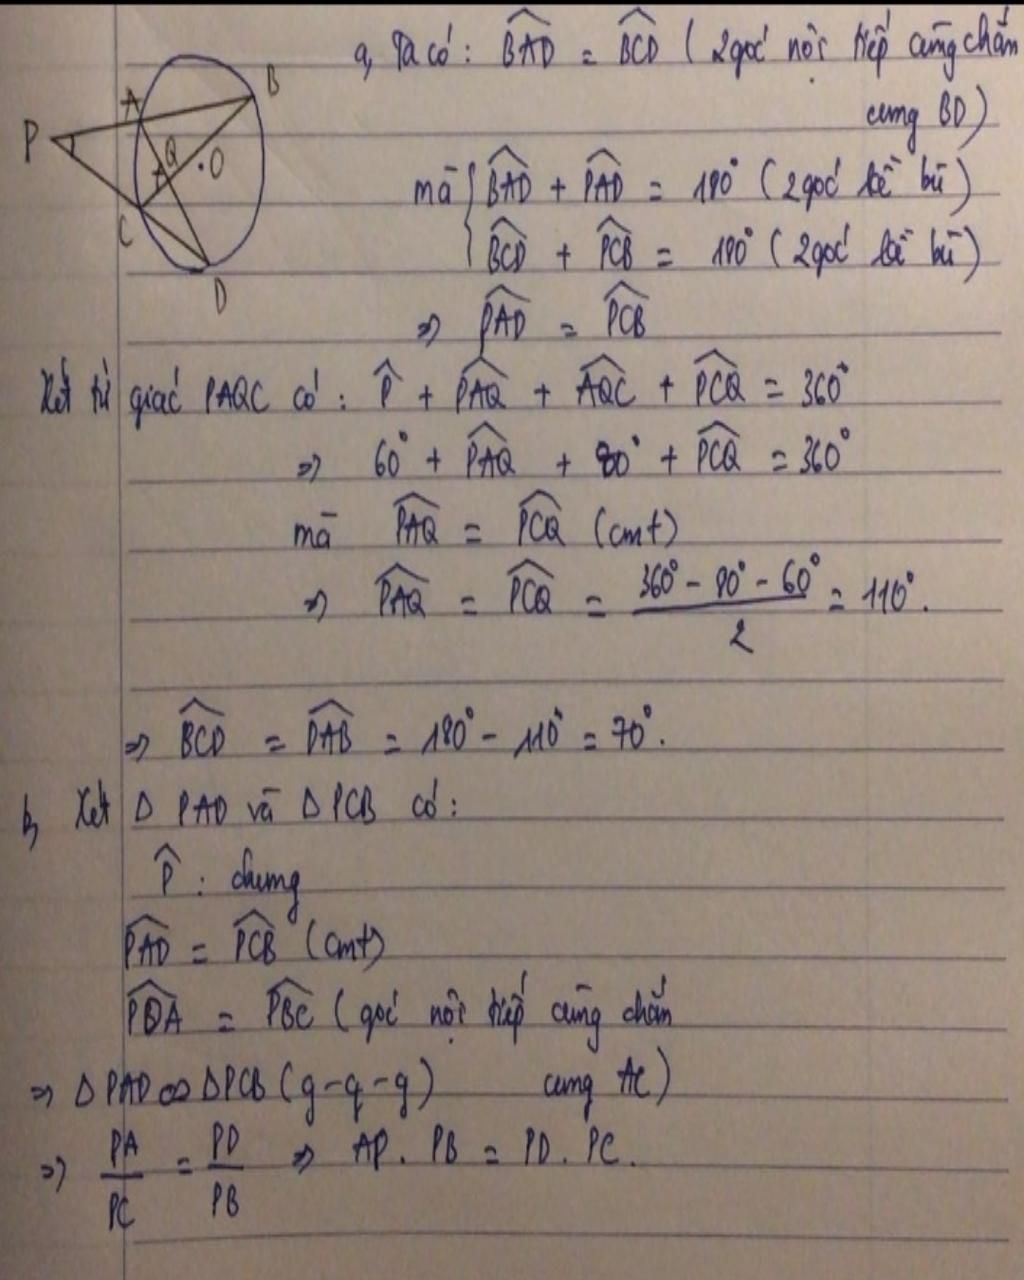 a, Ta có: \widehat{BAD} = \widehat{BCD} (2 góc nội tiếp cùng chắn
cung BD)
A
B
P
Q
O
C
D
mà { \widehat{BAD} + \widehat{PAD} = 180° (2 góc kề bù)
\widehat{BCD} + \widehat{PCB} = 180° (2 góc kề bù)
⇒ \widehat{PAD} = \widehat{PCB}
Xét tứ giác PAQC có: \widehat{P} + \widehat{PAQ} + \widehat{AQC} + \widehat{PCQ} = 360°
⇒ 60° + \widehat{PAQ} + 80° + \widehat{PCQ} = 360°
mà \widehat{PAQ} = \widehat{PCQ} (cmt)
⇒ \widehat{PAQ} = \widehat{PCQ} = \frac{360° - 80° - 60°}{2} = 110°.
⇒ \widehat{BCD} = \widehat{DAB} = 180° - 110° = 70°.
b, Xét Δ PAD và Δ PCB có:
\widehat{P} : chung
\widehat{PAD} = \widehat{PCB} (cmt)
\widehat{PDA} = \widehat{PBC} (góc nội tiếp cùng chắn
⇒ Δ PAD ∽ Δ PCB (g-g-g) cung AC)
⇒ \frac{PA}{PC} = \frac{PD}{PB} ⇒ AP . PB = PD . PC.